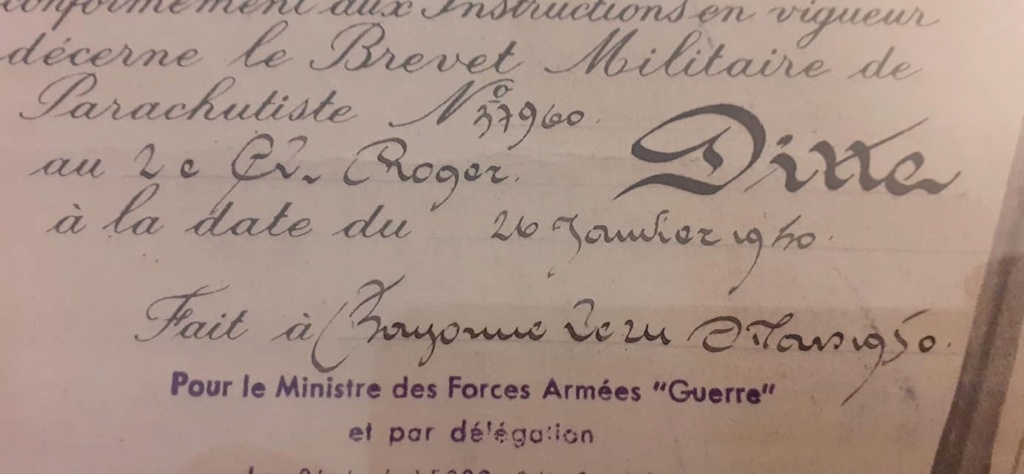 conformément aux Instructions en vigueur
décerne le Brevet Militaire de
Parachutiste No 37960.
au 2e Cl. Roger. Dine
à la date du 26 Janvier 1950.
Fait à Bayonne le Mars 1950.
Pour le Ministre des Forces Armées "Guerre"
et par délégation